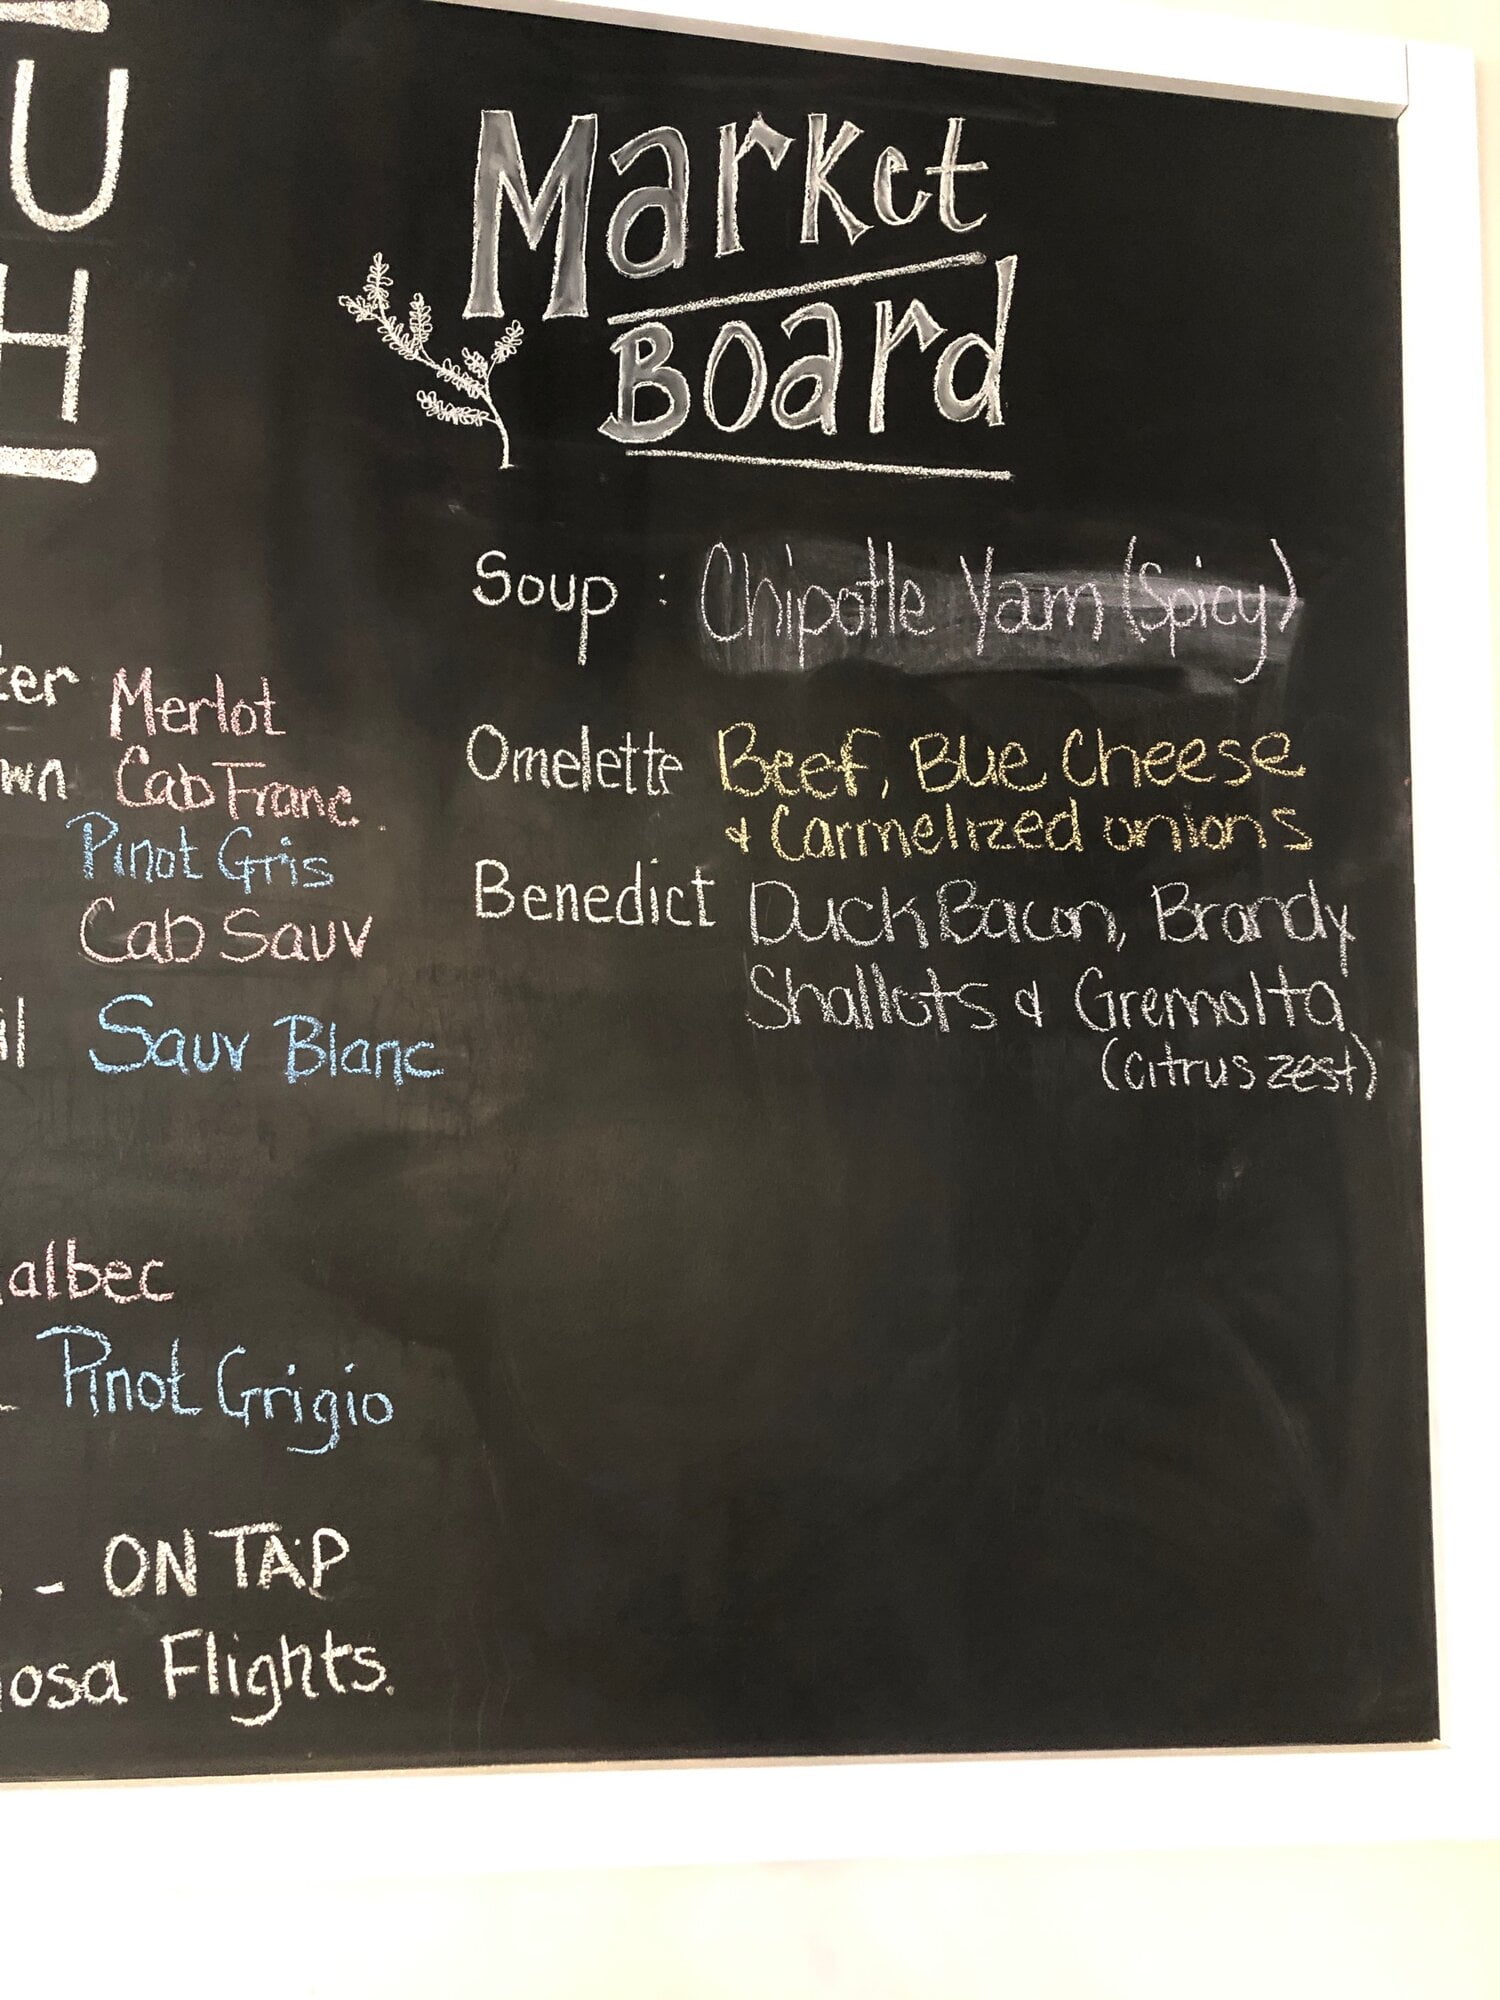 U
H
Market
Board
Soup : Chipotle Yam (Spicy)
Omelette Beef, Blue Cheese
& Carmelized onions
Benedict Duck Bacon, Brandy
Shallots & Gremolta
(citrus zest)
ter Merlot
wn Cab Franc
Pinot Gris
Cab Sauv
il Sauv Blanc
albec
Pinot Grigio
- ON TAP
osa Flights.